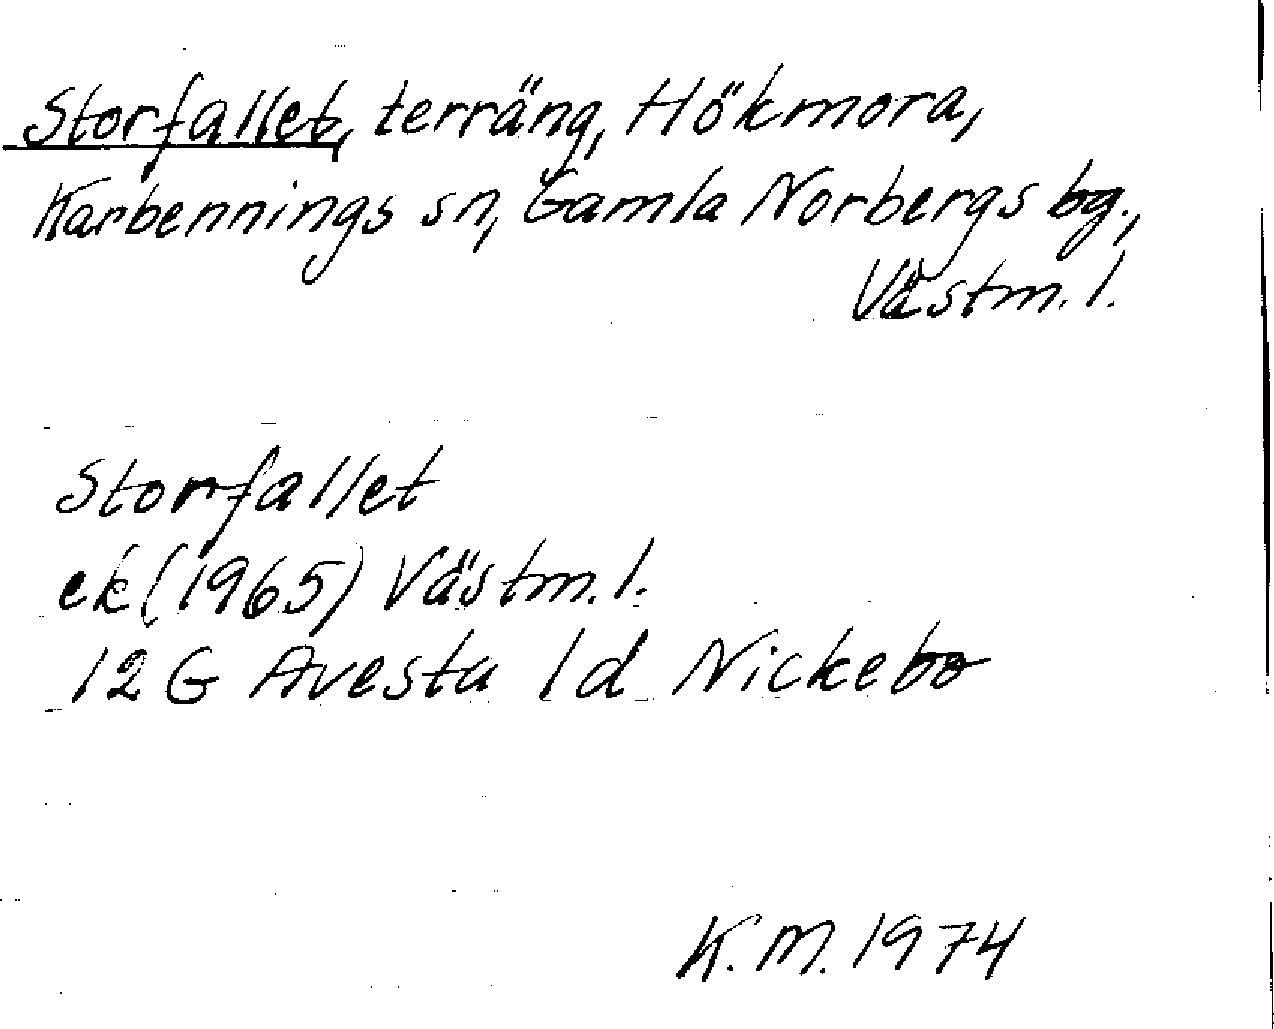 Storfallet, terräng, Hökmora,
Karbennings sn, Gamla Norbergs bg.,
Västm. l.
Storfallet
ek (1965) Västm. l.
12 G Avesta 1d Nickebo
K.M. 1974